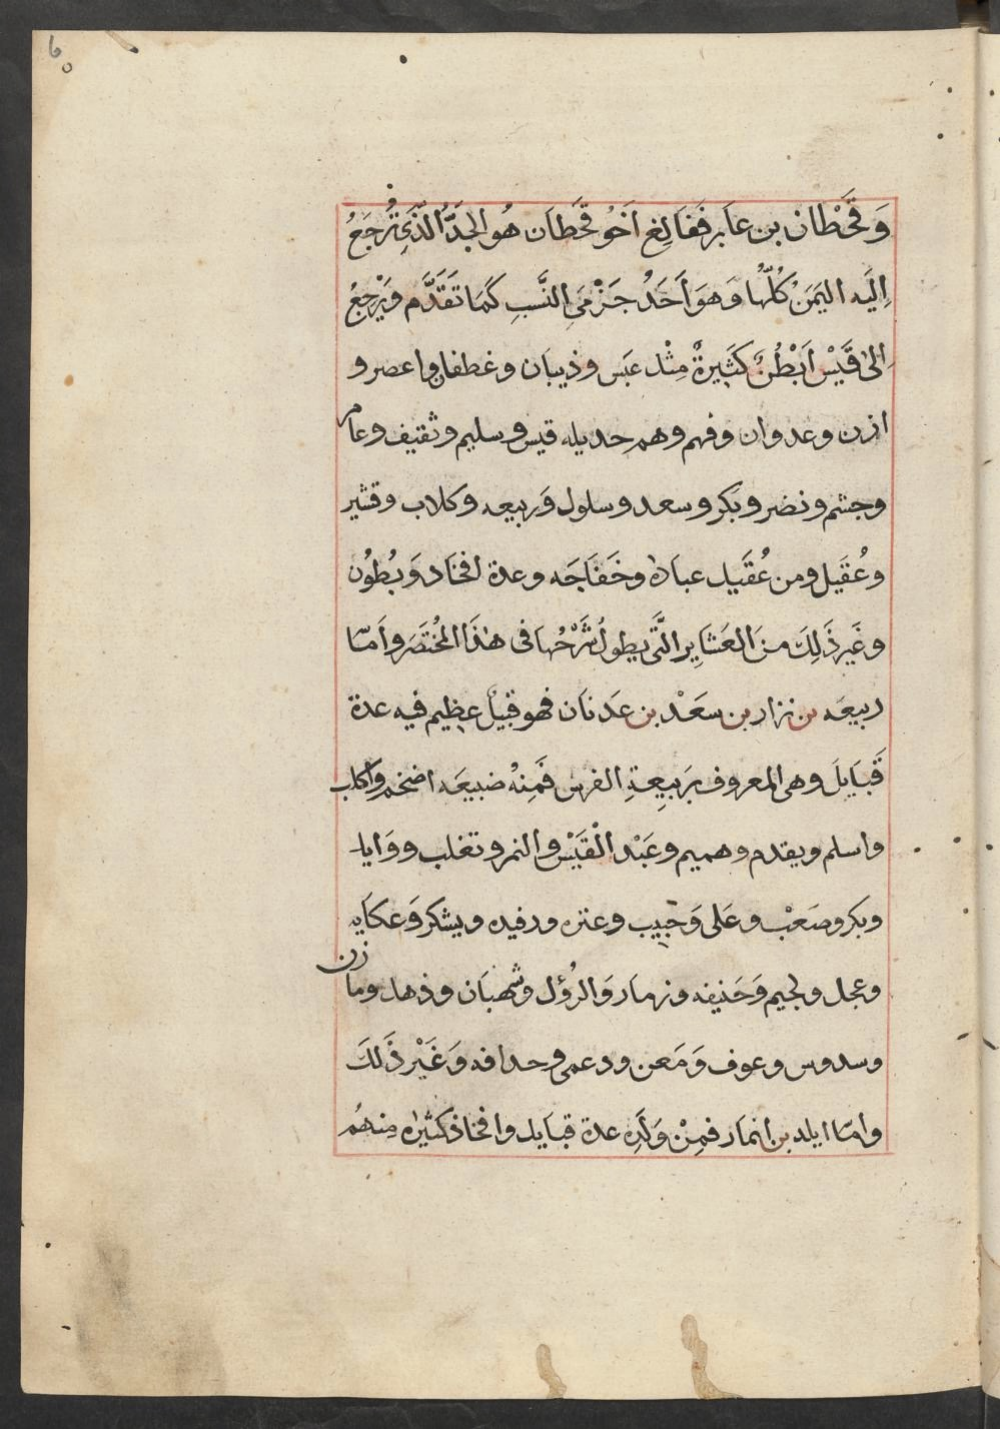 ٦٥
وَقَحْطَان بن عَابر فَفَالِغ اَخُو قَحَطان هُو الجَدَّ الَّذِى تُرجَعُ
اِلَيه اليَمَنْ كُلّهُا وَهوَ أَحَدُ جَزْمَىِ النَّسبِ كَمَا تَقَدَّم وَيَرجعُ
اِلىٰ قَيْس اَبْطُنٌ كَثِيرةٌ مِثْل عبَس وذيبَان وغطفان واعصر و
ازن وعدوان وفهم وهم جديله قيس وسليم وثقيف وعامر
وجشم ونضر وبَكر وسعد وسلول وَربيعه وكلاب وقشير
وعُقَيل ومن عُقَيل عبادة وخَفَاجَه وعدة افخاد وَبُطوُن
وغَير ذَلِكَ منَ العَشايِر الَّتى يطولُ شَرْحُهَا فى هٰذَا المُختَصَر وَاَمّا
ربيعَه بن نزار بن سعَدْ بن عَدنَان فهو قبيْل عظِيم فيه عدة
قَبَايلَ وهى المعروف برَبيعةِ الفرس فَمِنْهُ ضبيعَه اضخم واكلب
واسلم ويقدم وهميم وعَبْد القَيْس والنمر وتغلب ووَايل
وبكر وصَعْب وعَلى وَحَبيِب وعنزه ورفيده ويشكر وَعكَابه
وعجل ولجيم وَحَنيفه وزمار وَالزُول وشهبَان وذهل ومازن
وسدوس وعوف وَمَعن ودعمى وحدافه وَغَيْر ذَلكَ
وامّا ايلد بن انمار فمِنْ وَلَدِه عدة قبَايل وافخاذ كثيره مِنهُم